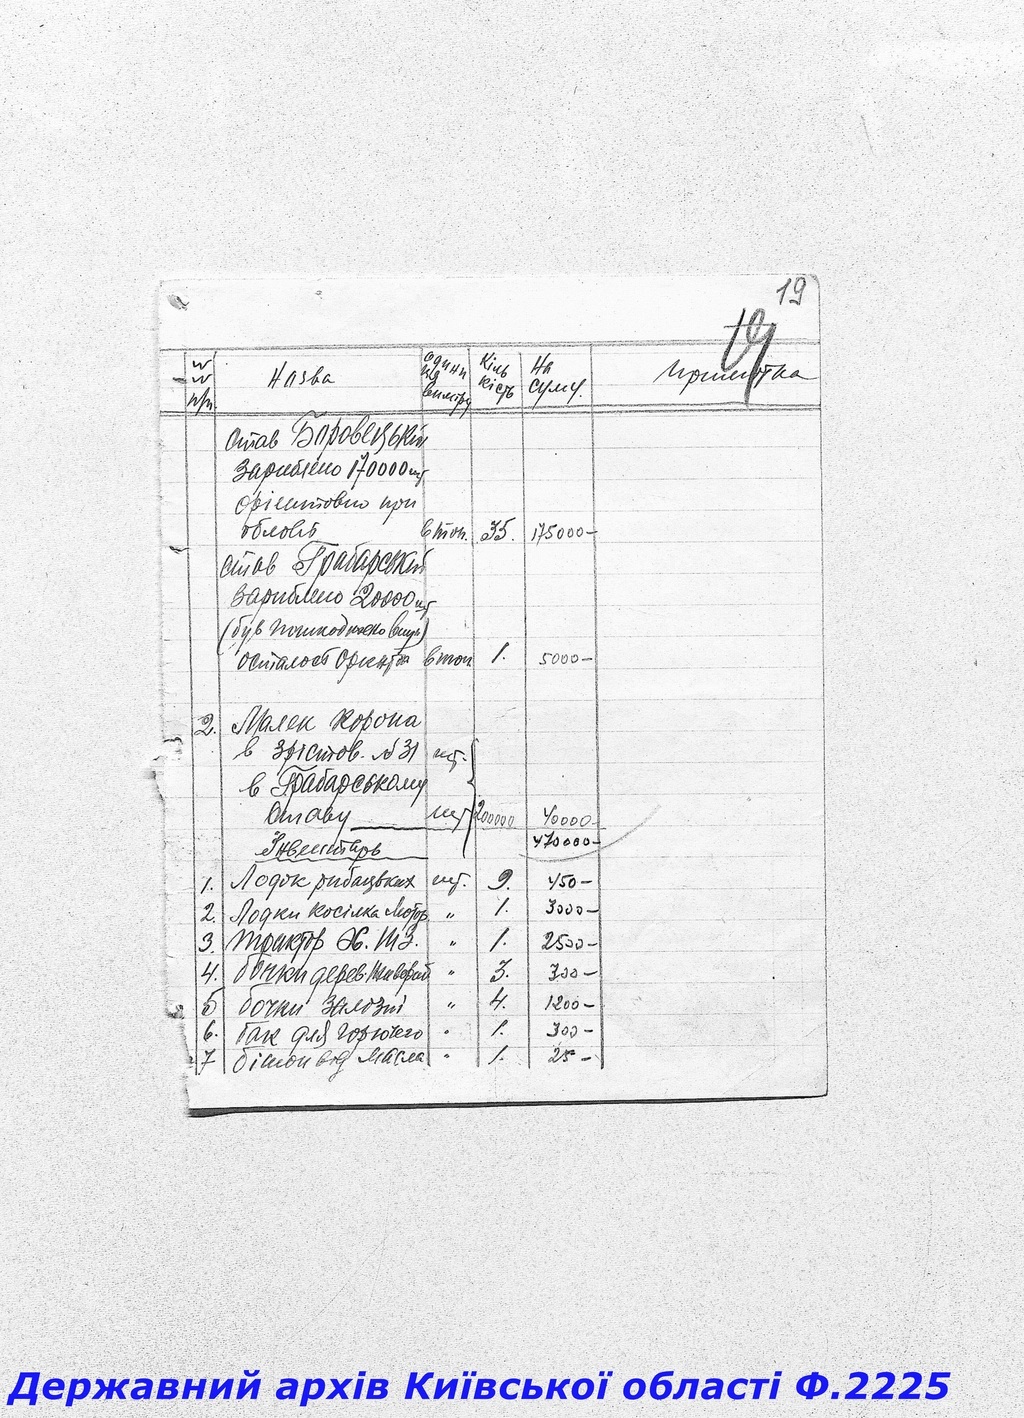 19
19
№№ п/п. Назва Одиниця виміру Кількість На суму. Примітка
Став Боровецький
Зариблено 170000 шт
орієнтовно при
облові в тон. 35. 175000-
Став Грабарський
Зариблено 20000 шт
(був пошкоджено
осталось орієнт в тон 1. 5000-
2. Мальок Коропа
в Зрістов. №31 шт.
в Грабарському
Ставу шт 200000 40000-
Інвентарь 470000-
1. Лодок рибацьких шт. 9. 450-
2. Лодки косілка Мотор " 1. 3000-
3. Трактор Х.Т.З. " 1. 2500-
4. бочки дерев. " 3. 300-
5 бочки Залізні " 4. 1200-
6. бак для горючего " 1. 300-
7 бітон від Масла " 1. 25-
Державний архів Київської області Ф.2225